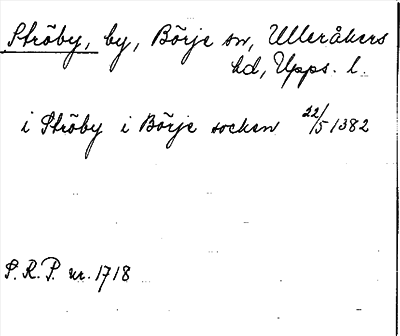 Ströby, by, Börje sn, Ulleråkers
hd, Upps. l.
i Ströby i Börje socken 22/5 1382
S. R. P. nr. 1718